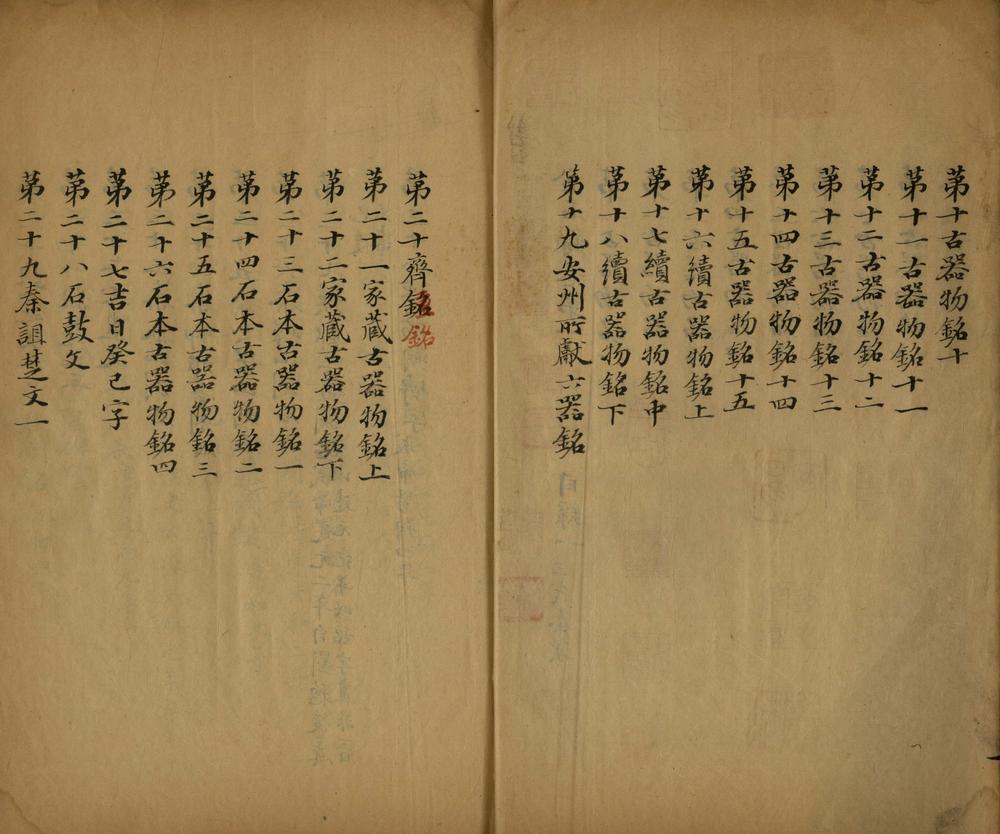 第十古器物銘十
第十一古器物銘十一
第十二古器物銘十二
第十三古器物銘十三
第十四古器物銘十四
第十五古器物銘十五
第十六續古器物銘上
第十七續古器物銘中
第十八續古器物銘下
第十九安州所獻六器銘
第二十齊鐘銘
第二十一家藏古器物銘上
第二十二家藏古器物銘下
第二十三石本古器物銘一
第二十四石本古器物銘二
第二十五石本古器物銘三
第二十六石本古器物銘四
第二十七吉日癸巳字
第二十八石鼓文
第二十九秦詛楚文一